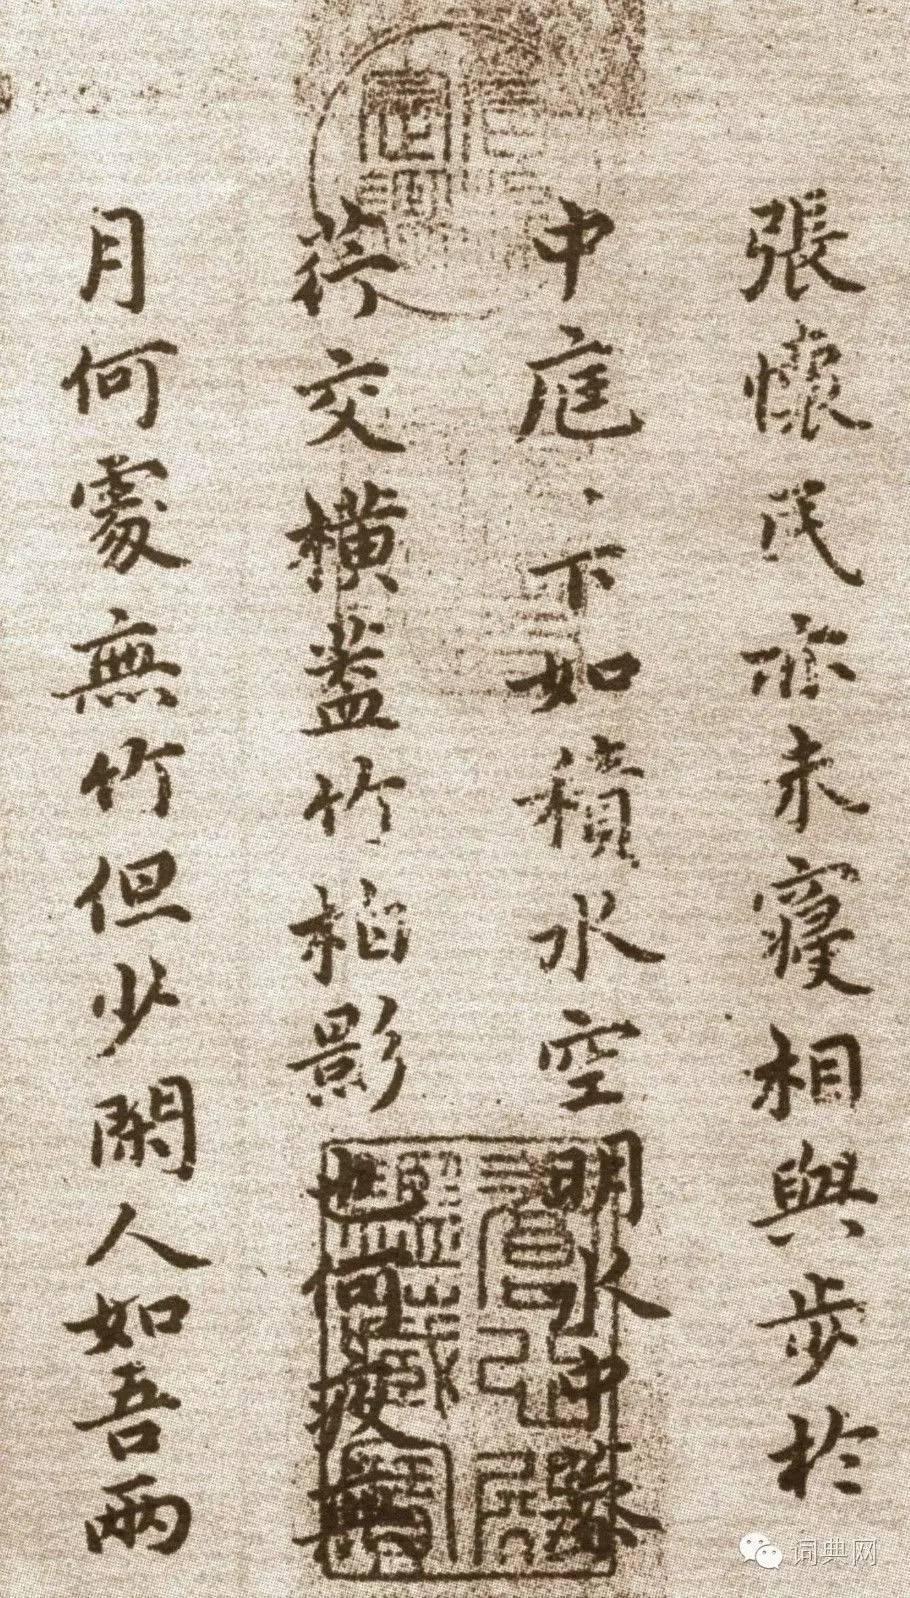 張懷民亦未寢相與步於
中庭、下如積水空明水中藻
荇交橫蓋竹柏影也何夜無
月何處無竹但少閑人如吾兩
词典网